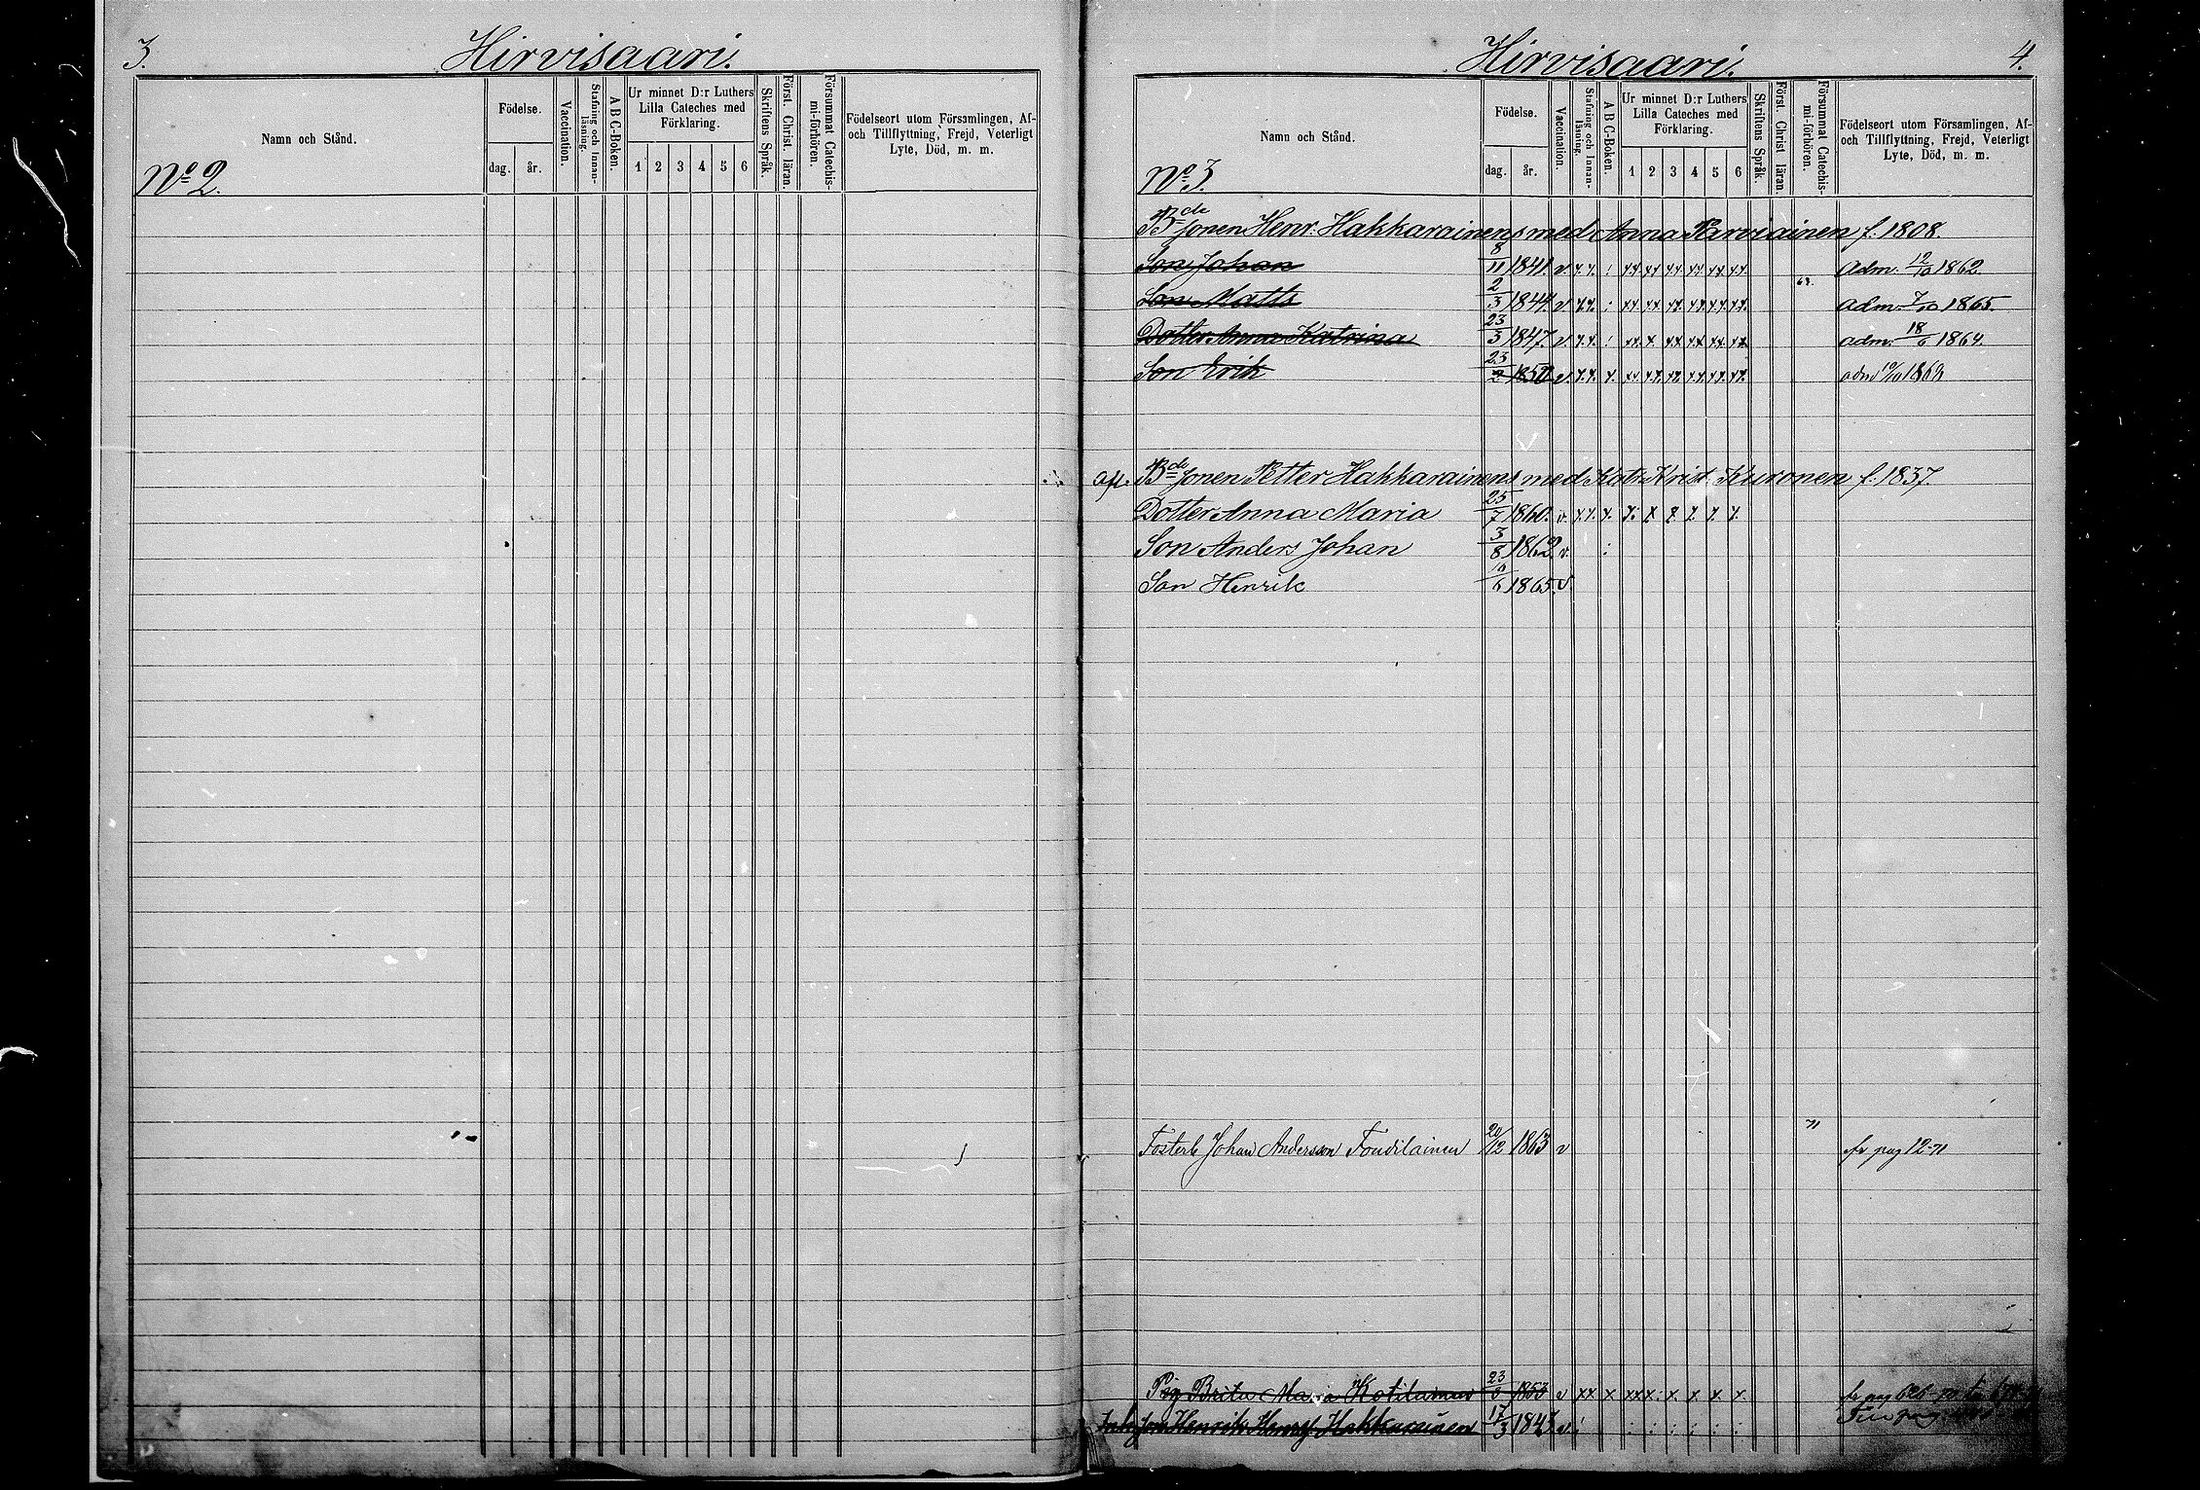 3.
Hirvisaari.
Namn och Stånd.
Födelse.
dag.
år.
Vaccination.
Stafning och Innan-
läsning.
A B C-Boken.
Ur minnet D:r Luthers
Lilla Cateches med
Förklaring.
1 2 3 4 5 6
Skriftens Språk.
Först. Christ. läran.
Försummat Catechis-
mi-förhören.
Födelseort utom Församlingen, Af-
och Tillflyttning, Frejd, Veterligt
Lyte, Död, m. m.
No 2.
Hirvisaari.
4.
Namn och Stånd.
Födelse.
dag.
år.
Vaccination.
Stafning och Innan-
läsning.
A B C-Boken.
Ur minnet D:r Luthers
Lilla Cateches med
Förklaring.
1 2 3 4 5 6
Skriftens Språk.
Först. Christ. läran.
Försummat Catechis-
mi-förhören.
Födelseort utom Församlingen, Af-
och Tillflyttning, Frejd, Veterligt
Lyte, Död, m. m.
No 3.
Bde Jonen Henr. Hakkarainens med Anna Parviainen f. 1808.
Son Johan 8/11 1841. v adm. 12/10 1862
Son Matts 2/3 1844. v adm. 7/10 1865.
Dotter Anna Katrina 23/3 1847. v adm. 18/6 1864.
Son Erik 23/2 1850 v adm 10/10 1869
afl. Bde Jonen Petter Hakkarainens med Katr. Krist. Kuronen f. 1837.
Dotter Anna Maria 25/7 1860. v.
Son Anders Johan 3/8 1862 v.
Son Henrik 10/6 1865. v.
71
Fosterb Johan Andersson Toudilainen 20/12 1863 v fr pag 12-71
Pig Brita Maria 23 1853 v fr pag
Henrik Hakkarainen 17/3 184 v